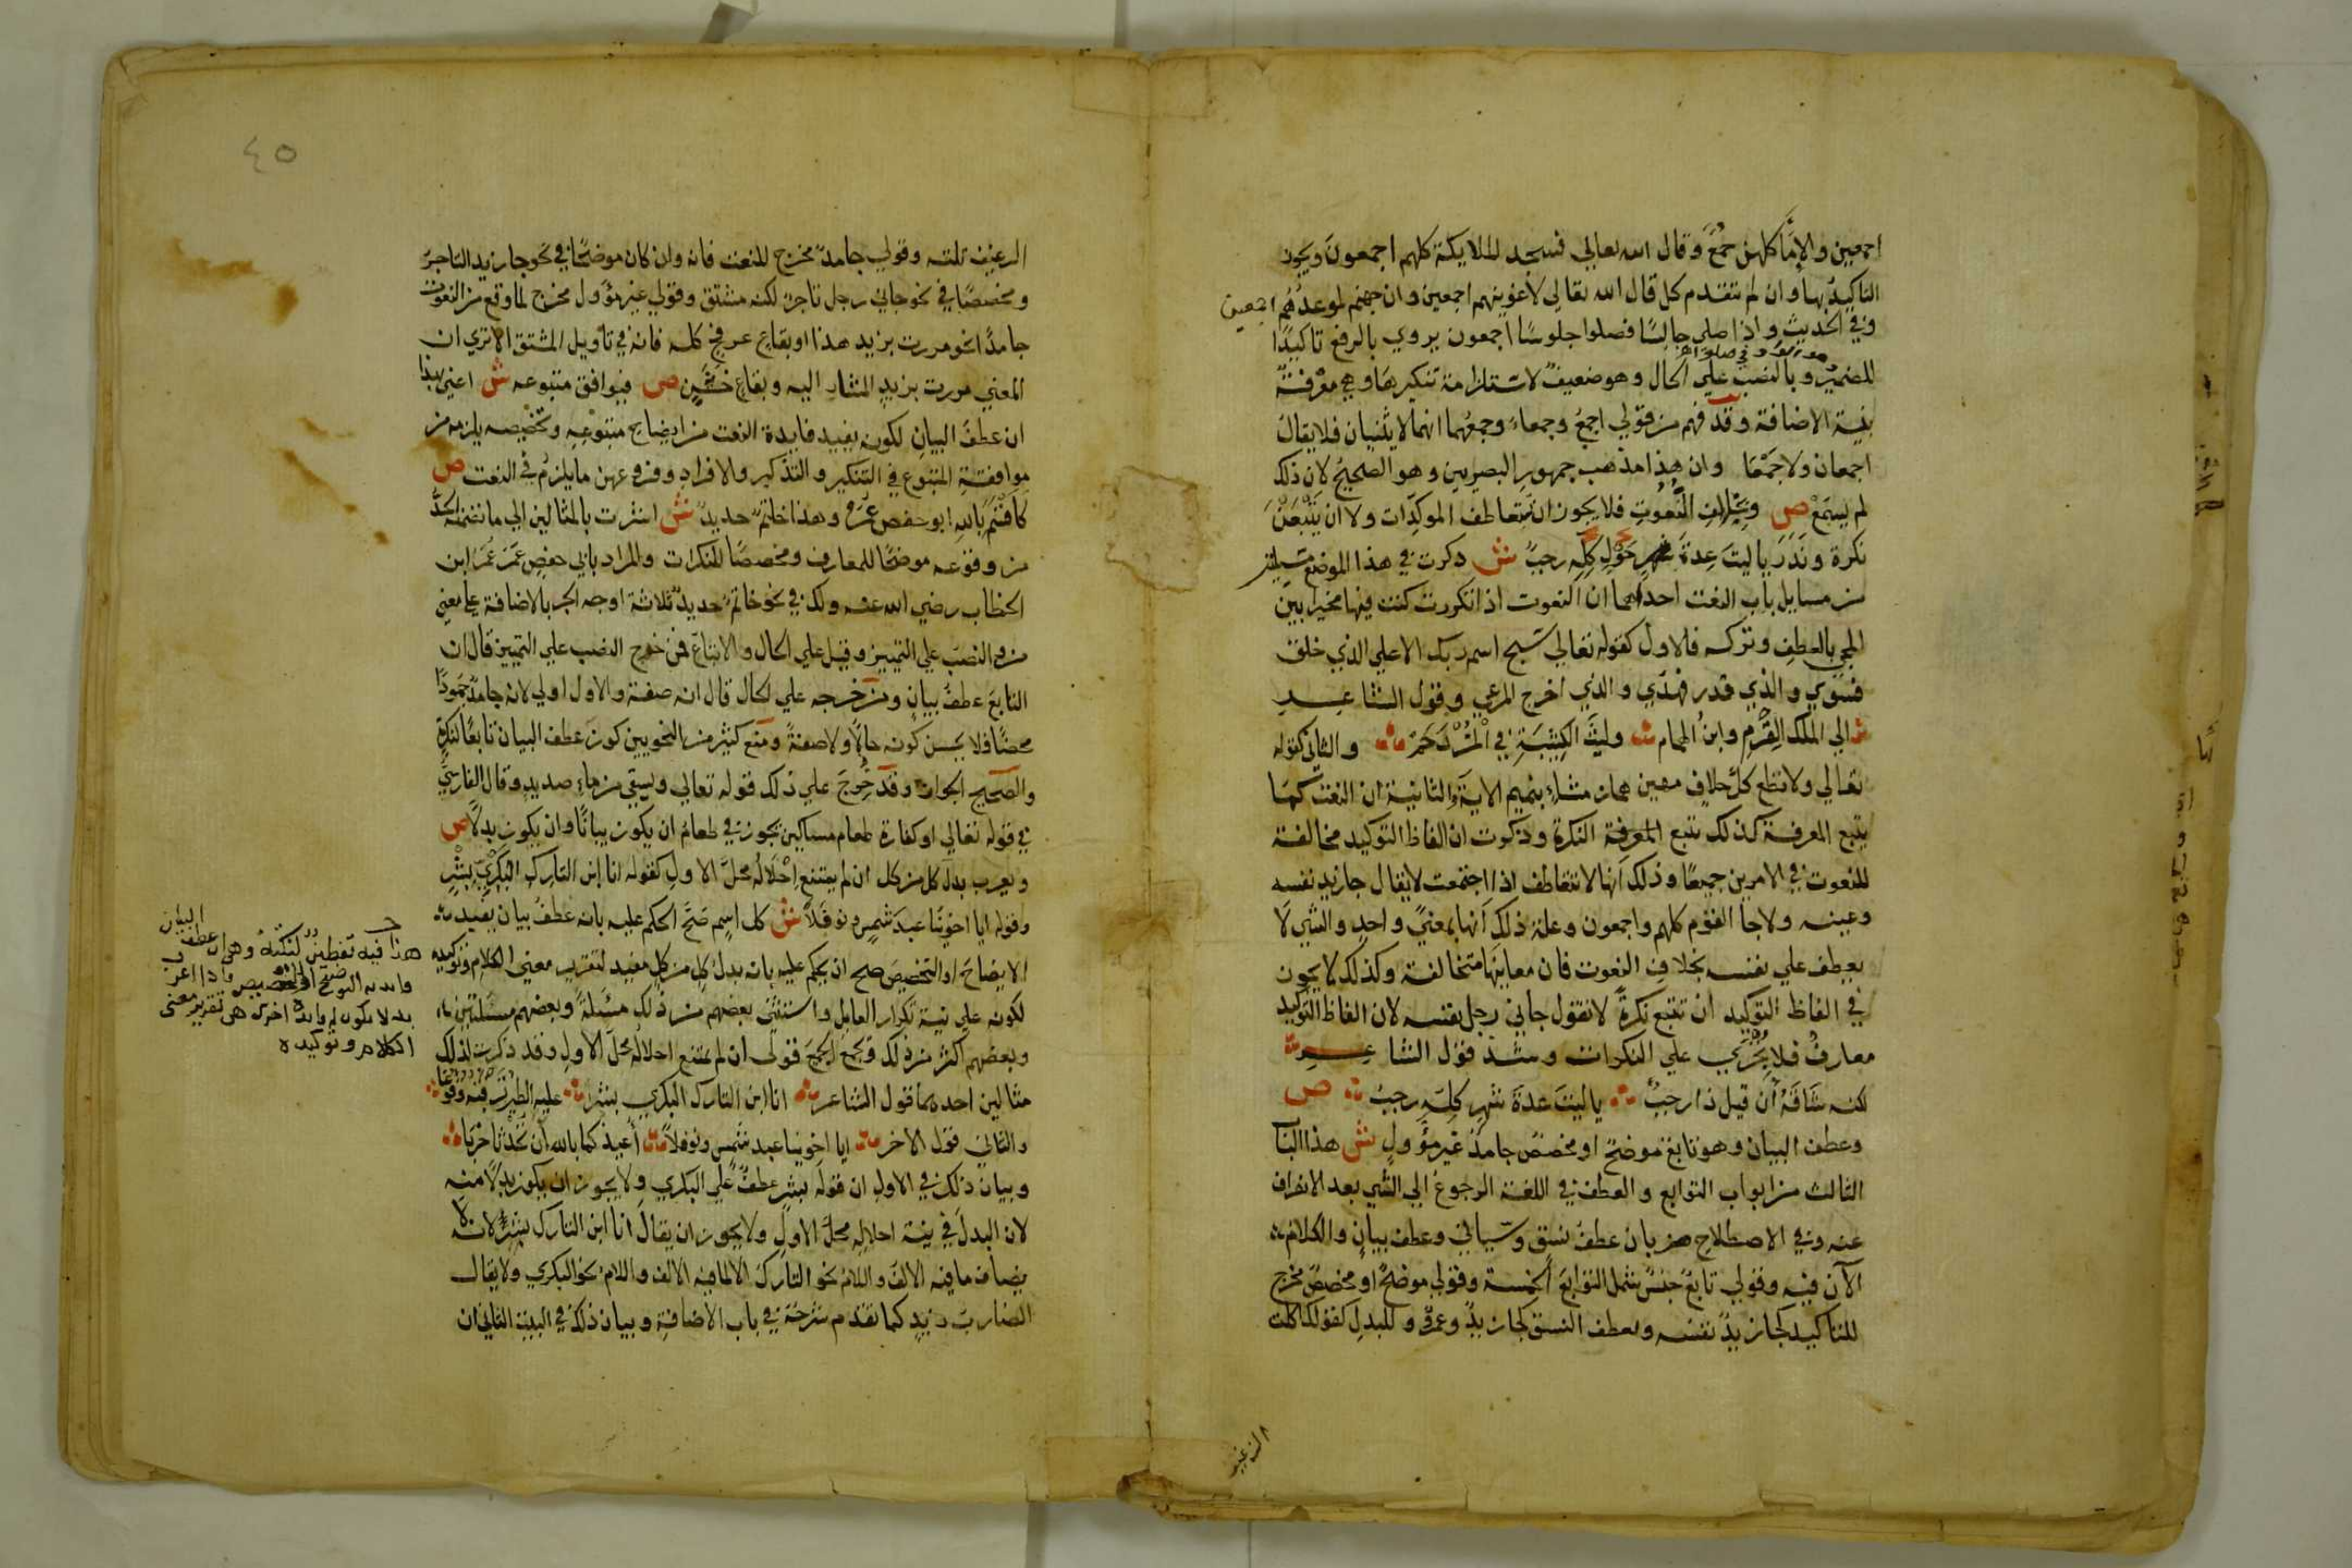 اجمعين والإما كلهن جمع وقال الله تعالي فسجد الملايكة كلهم اجمعون ويجوز
التاكيد بها وان لم تتقدم كل قال الله تعالي لاغوينهم اجمعين وان جهنم لموعدهم اجمعين
وفي الحديث واذا صلي جالسا فصلوا جلوسا اجمعون يروي بالرفع تاكيدا
للضمير وبالنصب علي الحال وهو ضعيف لاستلزامه تنكيرها وهي معرفة
بنية الاضافة وقد فهم من قولي اجمع وجمعاء وجمعهما انهما لا يثنيان فلا يقال
اجمعان ولا جمعا وان هذا مذهب جمهور البصريين وهو الصحيح لان ذلك
لم يسمع ص وبخلاف النعوت فلا يجوز ان تتعاطف الموكدات ولا ان يتبعن
نكرة وندر ياليت عدة حول كله رجب ش ذكرت في هذا الموضع مسيلتين
من مسايل باب النعت احداهما ان النعوت اذا تكررت كنت فيها مخيرا بين
المجي بالعطف وتركه فالاول كقوله تعالي سبح اسم ربك الاعلي الذي خلق
فسوي والذي قدر فهدي والذي اخرج المرعي وقول الشاعر
الي الملك القرم وابن الهمام وليث الكتيبة في المزدحم والثاني كقوله
تعالي ولا تطع كل حلاف مهين هماز مشاء بنميم الاية والثانية ان النعت كما
يتبع المعرفة كذلك يتبع النكرة وذكرت ان الفاظ التوكيد مخالفة
للنعوت في الامرين جميعا وذلك انها لا تتعاطف اذا اجتمعت لا يقال جا زيد نفسه
وعينه ولا جا القوم كلهم واجمعون وعلة ذلك انها بمعني واحد والشي لا
يعطف علي نفسه بخلاف النعوت فان معانيها متخالفة وكذلك لا يجوز
في الفاظ التوكيد ان تتبع نكرة لا تقول جاني رجل نفسه لان الفاظ التوكيد
معارف فلا تجري علي النكرات وشذ قول الشاعر
لكنه شاقه أن قيل ذا رجب ياليت عدة شهر كله رجب ص
وعطف البيان وهو تابع موضح او مخصص جامد غير مؤول ش هذا الباب
الثالث من ابواب التوابع والعطف في اللغة الرجوع الي الشي بعد الانصراف
عنه وفي الاصطلاح ضربان عطف نسق وسياتي وعطف بيان والكلام
الآن فيه وقولي تابع جنس يشمل التوابع الخمسة وقولي موضح او مخصص مخرج
للتاكيد كجا زيد نفسه ولعطف النسق كجا زيد وعمرو وللبدل كقولك اكلت
الرغيف
٤٥
الرغيف ثلثه وقولي جامد مخرج للنعت فانه وان كان موضحا في نحو جا زيد التاجر
ومخصصا في نحو جاني رجل تاجر لكنه مشتق وقولي غير مؤول مخرج لما وقع من النعوت
جامدا نحو مررت بزيد هذا او بقاع عرفج كله فانه في تاويل المشتق الا تري ان
المعني مررت بزيد المشار اليه وبقاع خشن ص فيوافق متبوعه ش اعني بهذا
ان عطف البيان لكونه يفيد فايدة النعت من ايضاح متبوعه وتخصيصه يلزمه من
موافقة المتبوع في التنكير والتذكير والافراد وفروعهن ما يلزم في النعت ص
كأقسم بالله ابو حفص عمر وهذا خاتم حديد ش اشرت بالمثالين الي ما تضمنه الحد
من وقوعه موضحا للمعارف ومخصصا للنكرات والمراد بابي حفص عمر عمر ابن
الخطاب رضي الله عنه ولك في نحو خاتم حديد ثلاثة اوجه الجر بالاضافة علي معني
من والنصب علي التمييز وقيل علي الحال والاتباع فمن خرج النصب علي التمييز قال ان
التابع عطف بيان ومن خرجه علي الحال قال انه صفة والاول اولي لانه جامد جمودا
محضا فلا يحسن كونه حالا ولا صفة ومنع كثير من النحويين كون عطف البيان تابعا لنكرة
والصحيح الجواز وقد خرج علي ذلك قوله تعالي ويسقي من ماء صديد وقال الفارسي
في قوله تعالي او كفارة طعام مساكين يجوز في طعام ان يكون بيانا وان يكون بدلا ص
ويعرب بدل كل من كل ان لم يمتنع احلاله محل الاول كقوله انا ابن التارك البكري بشر
وقوله ايا اخوينا عبد شمس ونوفلا ش كل اسم صح الحكم عليه بانه عطف بيان يفيد
الايضاح او التخصيص صح ان يحكم عليه بانه بدل كل من كل مفيد لتقرير معني الكلام وتوكيده
لكونه علي نية تكرار العامل واستثني بعضهم من ذلك مسئلة وبعضهم مسئلتين
وبعضهم اكثر من ذلك ويجمع الجميع قولي ان لم يمتنع احلاله محل الاول وقد ذكرت لذلك
مثالين احدهما قول الشاعر انا ابن التارك البكري بشر عليه الطير ترقبه وقوعا
والثاني قول الاخر ايا اخوينا عبد شمس ونوفلا أعيذكما بالله أن تحدثا حربا
وبيان ذلك في الاول ان قوله بشر عطف علي البكري ولا يجوز ان يكون بدلا منه
لان البدل في نية احلاله محل الاول ولا يجوز ان يقال انا ابن التارك بشر لانه لا
يضاف ما فيه الالف واللام نحو التارك الا لما فيه الالف واللام نحو البكري ولا يقال
الضارب زيد كما تقدم شرحه في باب الاضافة وبيان ذلك في البيت الثاني ان
هذا فيه تفطين لنكتة وهي ان عطف البيان
فايدته التوضيح او التخصيص فاذا اعرب
بدلا يكون له فايدة اخري هي تقرير معنى
الكلام وتوكيده